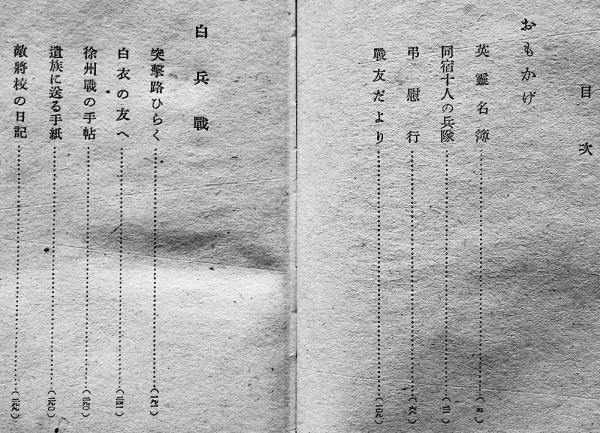 目次
おもかげ
英靈名簿
同宿十人の兵隊
弔慰行
戰友だより
白兵戰
突擊路ひらく
白衣の友へ
徐州戰の手帖
遺族に送る手紙
敵將校の日記